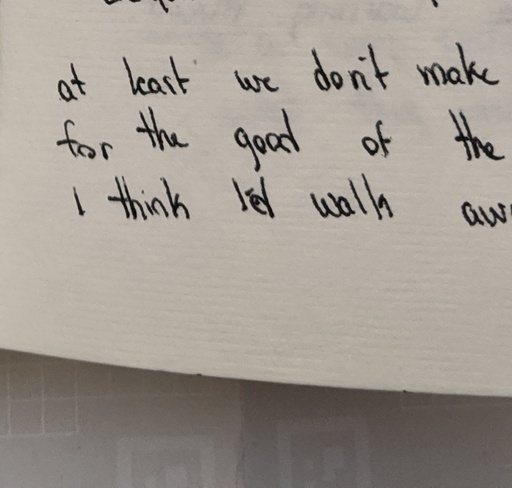 at least we don't make
for the good of the
I think I'd walk